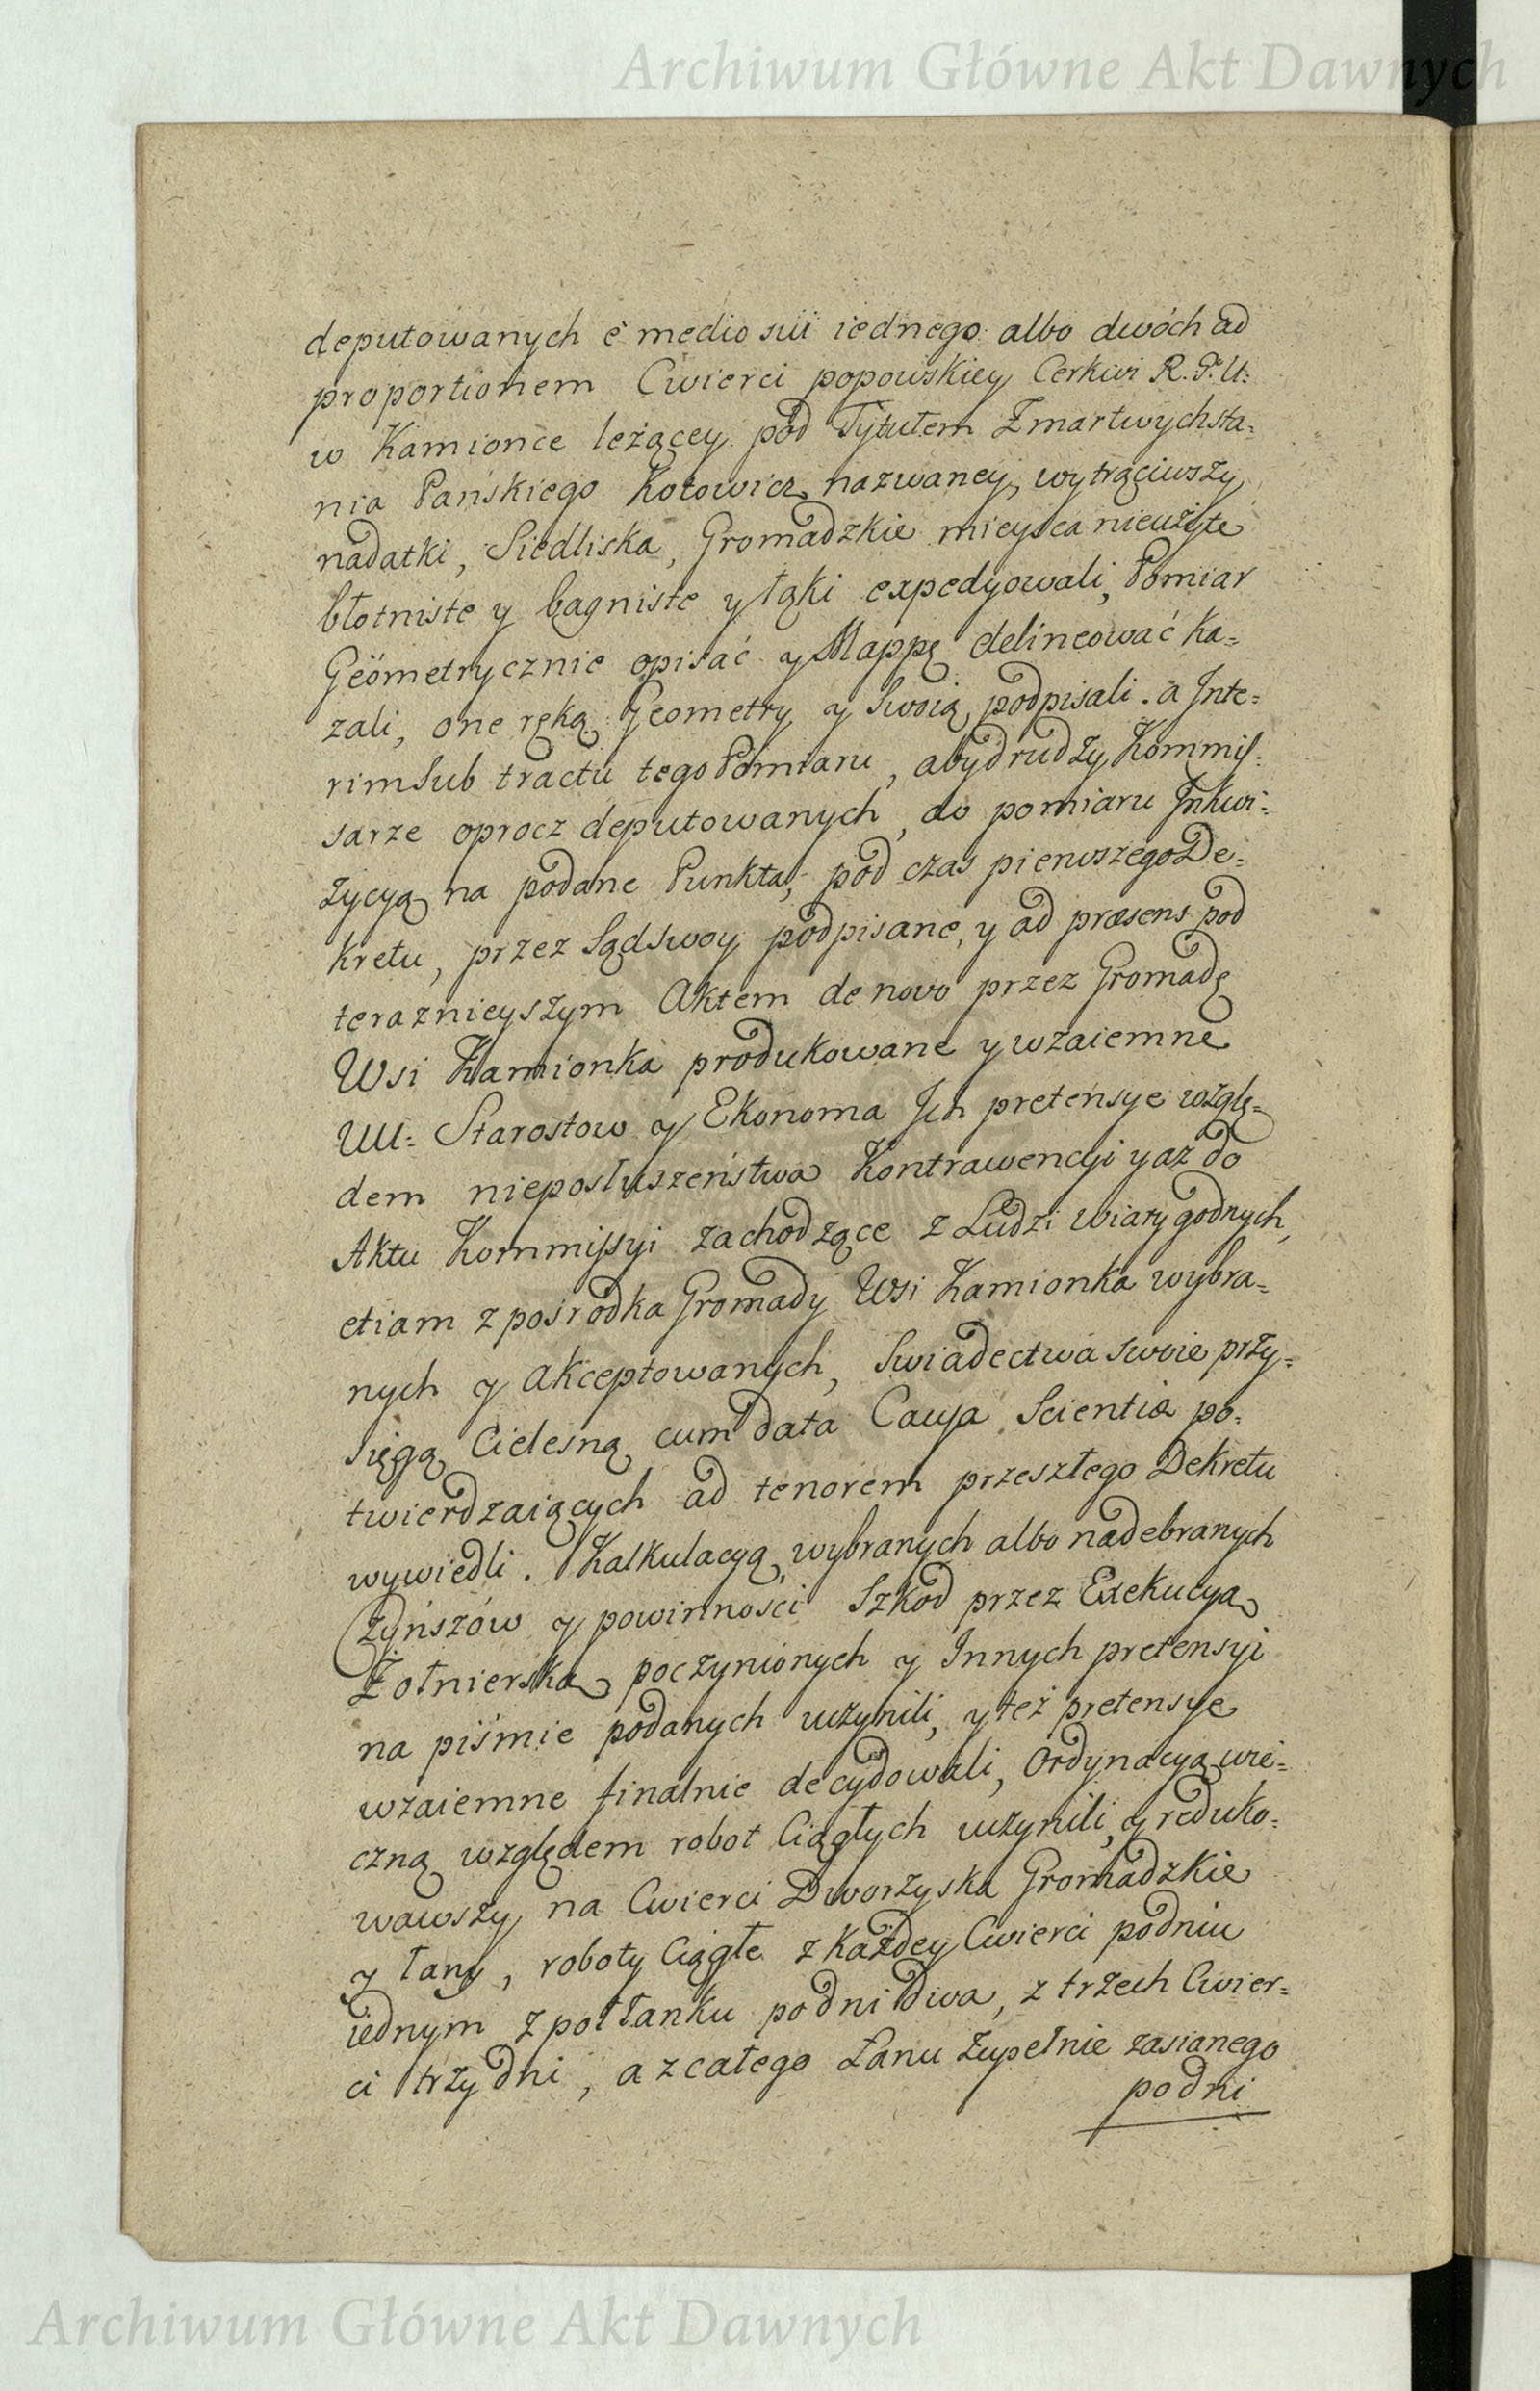 Archiwum Główne Akt Dawnych
deputowanych è medio sui iednego albo dwóch ad
proportionem Cwierci popowskiey Cerkwi R. G. U:
w Kamionce leżącey pod Tytułem Zmartwychsta=
nia Pańskiego Kotowicz nazwaney, wytrąciwszy
nadatki, Siedliska, Gromadzkie mieysca nieużyte
błotniste y bagniste y łąki expedyowali, Pomiar
Geömetrycznie opisać y Mappę delineować ka=
zali, one ręką Geometry y Swoią podpisali. a Inte=
rim sub tractu tego Pomiaru, aby drudzy Kommis=
sarze oprocz deputowanych, do pomiaru Inkwi=
zycyą na podane Punkta, pod czas pierwszego De=
kretu, przez Sąd swoy podpisane, y ad præsens pod
teraznieyszym Aktem de novo przez Gromadę
Wsi Kamionka produkowane y wzaiemne
UU: Starostow y Ekonoma Ich pretensye wzglę=
dem nieposłuszeństwa Kontrawencyi y aż do
Aktu Kommissyi zachodzące z Ludzi wiary godnych,
etiam z posrodka Gromady Wsi Kamionka wybra=
nych y akceptowanych, Swiadectwa swoie przy=
sięgą Cielesną cum data Causa Scientia po=
twierdzaiących ad tenorem przeszłego Dekretu
wywiedli. Kalkulacyą wybranych albo nadebranych
Czyńszów y powinności Szkod przez Exekucyą
Żołnierską poczynionych y Innych pretensyi
na piśmie podanych uczynili, y też pretensye
wzaiemne finalnie decydowali, Ordynacyą wie=
czną względem robot Ciągłych uczynili, y reduko=
wawszy na Cwierci Dworzyska Gromadzkie
y łany, roboty Ciągłe z każdey Cwierci po dniu
iednym z poł łanku po dni dwa, z trzech Cwier=
ci trzy dni, a z całego Łanu zupełnie zasianego
po dni
Archiwum Główne Akt Dawnych